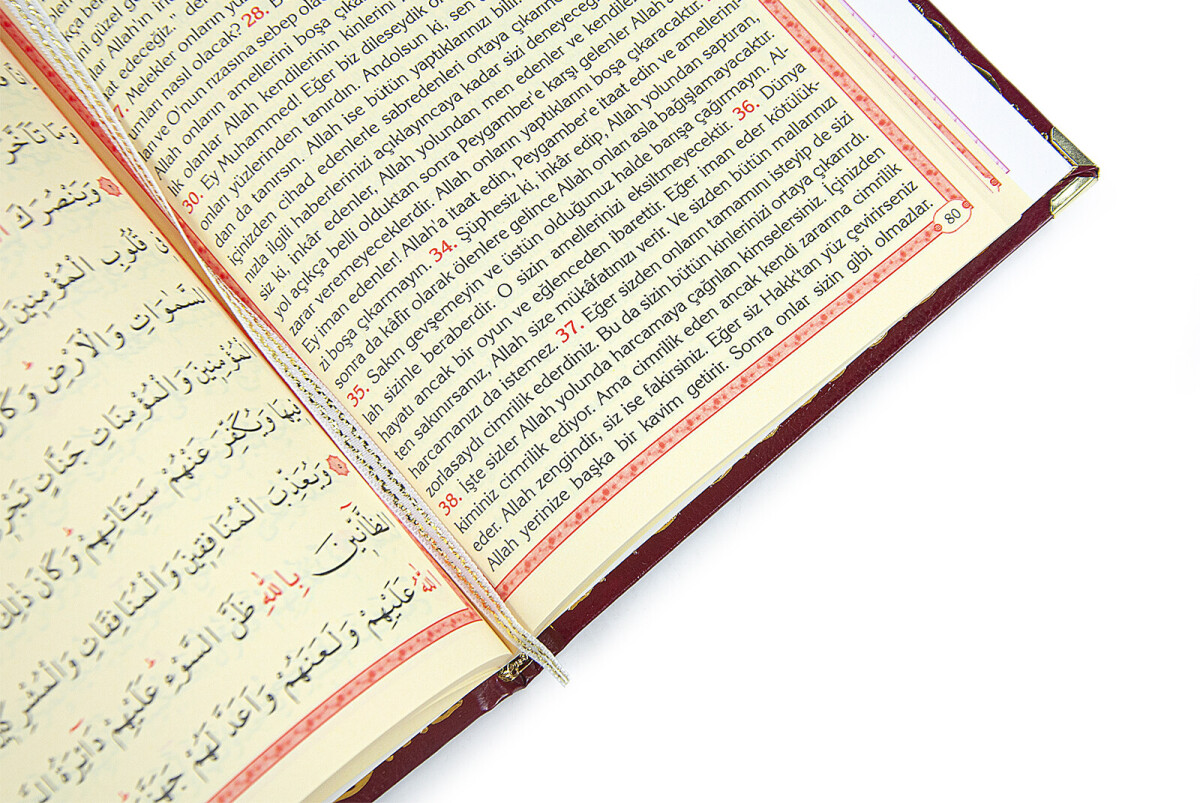 28.
ederiz, "
27. Melekler onların
umları nasıl olacak?
ve O'nun rızasına sebep
Allah onların amellerini boşa çıka
lik olanlar Allah kendilerinin kinlerini
30. Ey Muhammed! Eğer biz dileseydik o
onları yüzlerinden tanırdın. Andolsun ki, sen
dan da tanırsın. Allah ise bütün yaptıklarınızı bilir
içinizden cihad edenlerle sabredenleri ortaya çıkarınc
nızla ilgili haberlerinizi açıklayıncaya kadar sizi deneyeceğ
siz ki, inkâr edenler, Allah yolundan men edenler ve kendiler
yol açıkça belli olduktan sonra Peygamber'e karşı gelenler Allah'a
zarar veremeyeceklerdir. Allah onların yaptıklarını boşa çıkaracaktır.
Ey iman edenler! Allah'a itaat edin, Peygamber'e itaat edin ve amellerini-
zi boşa çıkarmayın. 34. Şüphesiz ki, inkâr edip, Allah yolundan saptıran,
sonra da kâfir olarak ölenlere gelince Allah onları asla bağışlamayacaktır.
35. Sakın gevşemeyin ve üstün olduğunuz halde barışa çağırmayın. Al-
lah sizinle beraberdir. O sizin amellerinizi eksiltmeyecektir. 36. Dünya
hayatı ancak bir oyun ve eğlenceden ibarettir. Eğer iman eder kötülük-
ten sakınırsanız, Allah size mükâfatınızı verir. Ve sizden bütün mallarınızı
harcamanızı da istemez. 37. Eğer sizden onların tamamını isteyip de sizi
zorlasaydı cimrilik ederdiniz. Bu da sizin bütün kinlerinizi ortaya çıkarırdı.
38. İşte sizler Allah yolunda harcamaya çağrılan kimselersiniz. İçinizden
kiminiz cimrilik ediyor. Ama cimrilik eden ancak kendi zararına cimrilik
eder. Allah zengindir, siz ise fakirsiniz. Eğer siz Hakk'tan yüz çevirirseniz
Allah yerinize başka bir kavim getirir. Sonra onlar sizin gibi olmazlar.
80
وَمَا تَاَخَّرَ
وَيَنْصُرَكَ
قُلُوبِ الْمُؤْمِنِينَ
السَّمٰوَاتِ وَالْاَرْضِ وَكَانَ
الْمُؤْمِنِينَ وَالْمُؤْمِنَاتِ جَنَّاتٍ تَجْرِي
فِيهَا وَيُكَفِّرَ عَنْهُمْ سَيِّئَاتِهِمْ وَكَانَ ذٰلِكَ
وَيُعَذِّبَ الْمُنَافِقِينَ وَالْمُنَافِقَاتِ وَالْمُشْرِكِينَ
الظَّٓانِّينَ بِاللّٰهِ ظَنَّ السَّوْءِ عَلَيْهِمْ دَٓائِرَةُ
اللّٰهُ عَلَيْهِمْ وَلَعَنَهُمْ وَاَعَدَّ لَهُمْ جَهَنَّمَ